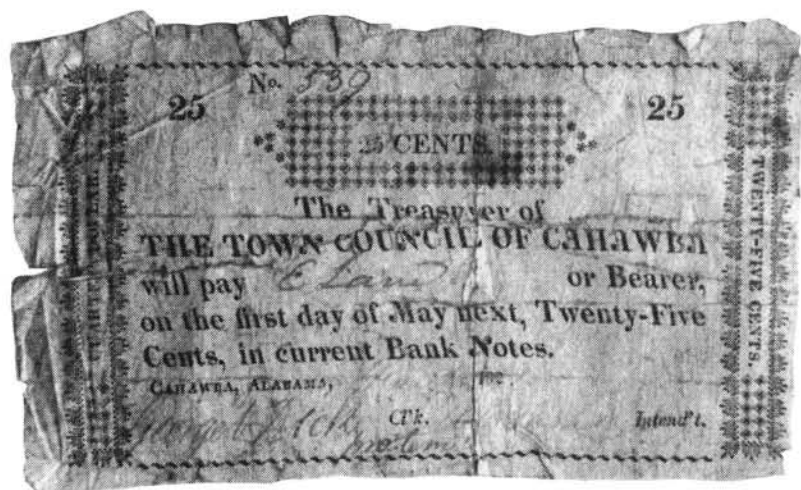 No. 539
25 25
25 CENTS.
The Treasurer of
THE TOWN COUNCIL OF CAHAWBA
will pay or Bearer,
on the first day of May next, Twenty-Five
Cents, in current Bank Notes.
CAHAWBA, ALABAMA,
Cl'k. Intend't.
QUARTER DOLLAR.
TWENTY-FIVE CENTS.